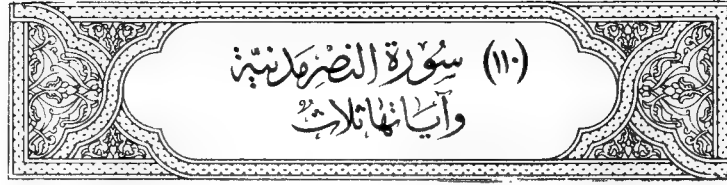 (١١٠) سُوْرَة النَّصْرِ مَدَنِيَّة
وَآيَاتُهَا ثَلَاثٌ